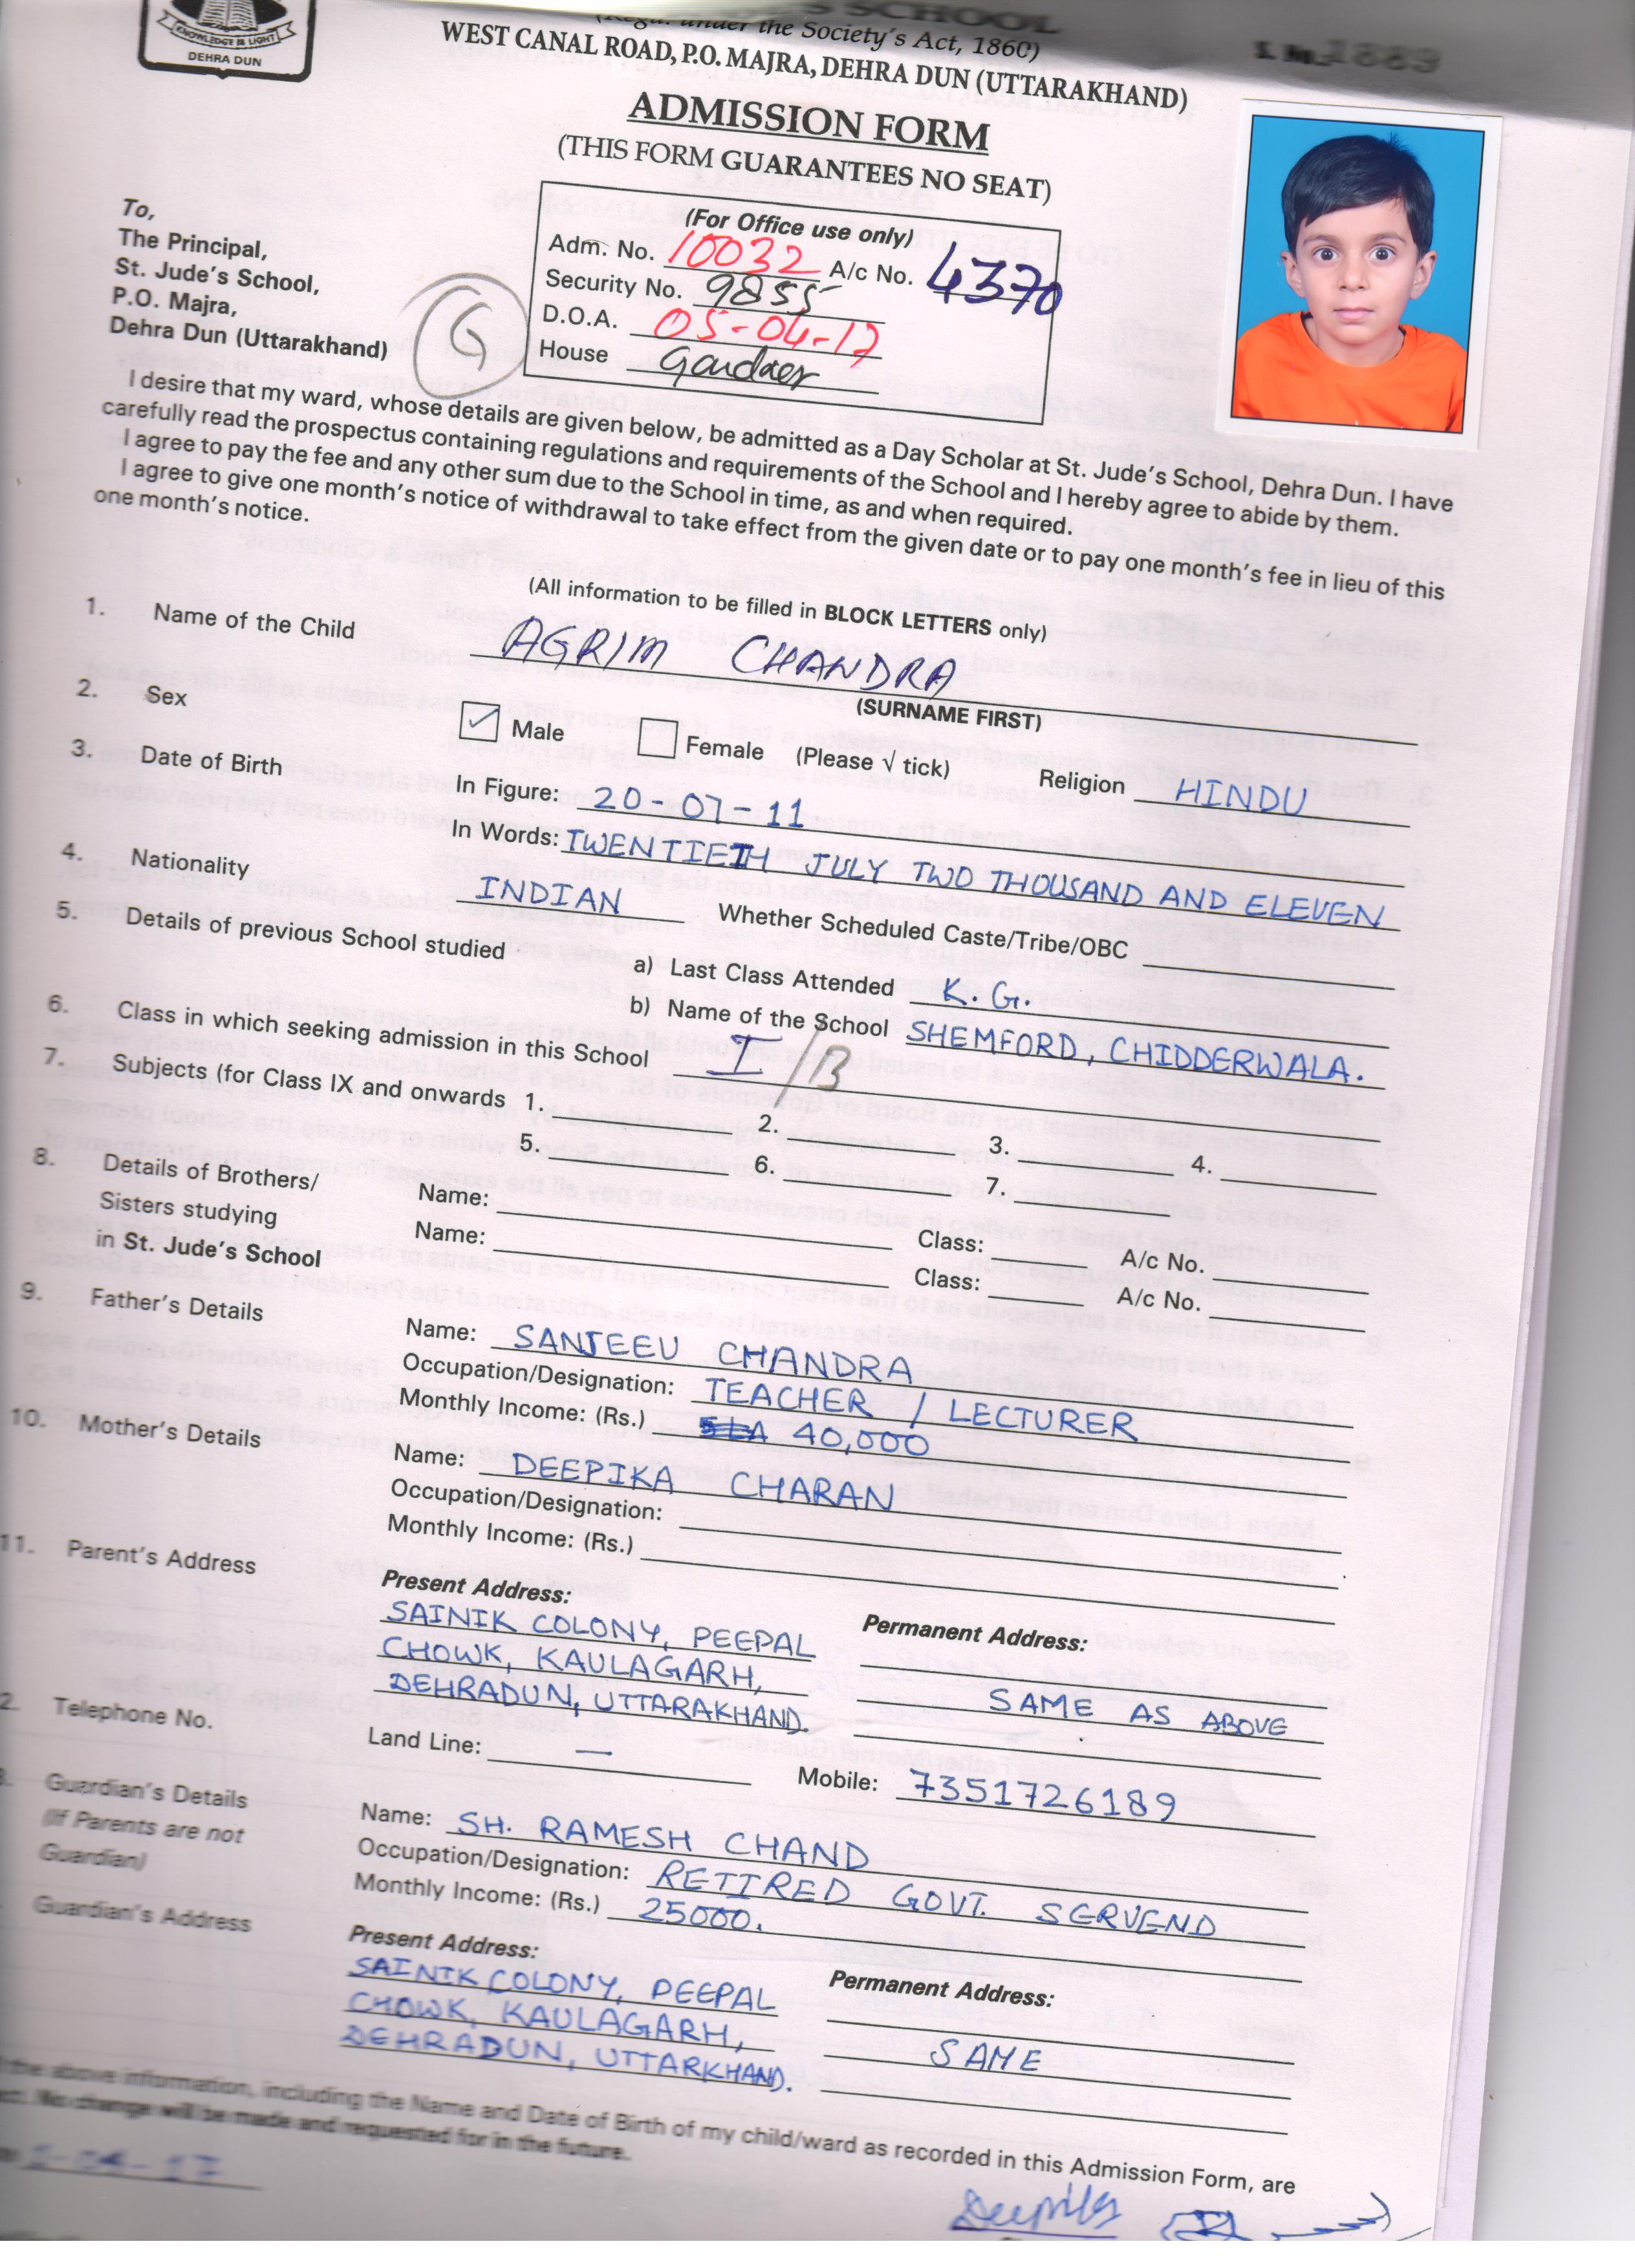 KNOWLEDGE IS LIGHT
DEHRA DUN
SCHOOL
(Regd. under the Society's Act, 1860)
S. No. 1883
WEST CANAL ROAD, P.O. MAJRA, DEHRA DUN (UTTARAKHAND)
ADMISSION FORM
(THIS FORM GUARANTEES NO SEAT)
To,
The Principal,
St. Jude's School,
P.O. Majra,
Dehra Dun (Uttarakhand)
G
(For Office use only)
Adm. No. 10032 A/c No. 4370
Security No. 9855
D.O.A. 05-04-17
House Gardner
I desire that my ward, whose details are given below, be admitted as a Day Scholar at St. Jude's School, Dehra Dun. I have
carefully read the prospectus containing regulations and requirements of the School and I hereby agree to abide by them.
I agree to pay the fee and any other sum due to the School in time, as and when required.
I agree to give one month's notice of withdrawal to take effect from the given date or to pay one month's fee in lieu of this
one month's notice.
(All information to be filled in BLOCK LETTERS only)
1. Name of the Child AGRIM CHANDRA
(SURNAME FIRST)
2. Sex Male Female (Please √ tick) Religion HINDU
3. Date of Birth In Figure: 20-07-11
In Words: TWENTIETH JULY TWO THOUSAND AND ELEVEN
4. Nationality INDIAN Whether Scheduled Caste/Tribe/OBC
5. Details of previous School studied a) Last Class Attended K.G.
b) Name of the School SHEMFORD, CHIDDERWALA.
6. Class in which seeking admission in this School I/B
7. Subjects (for Class IX and onwards 1. 2. 3. 4.
5. 6. 7.
8. Details of Brothers/ Name: Class: A/c No.
Sisters studying Name: Class: A/c No.
in St. Jude's School
9. Father's Details Name: SANJEEV CHANDRA
Occupation/Designation: TEACHER / LECTURER
Monthly Income: (Rs.) 40,000
10. Mother's Details Name: DEEPIKA CHARAN
Occupation/Designation:
Monthly Income: (Rs.)
11. Parent's Address Present Address: Permanent Address:
SAINIK COLONY, PEEPAL
CHOWK, KAULAGARH, SAME AS ABOVE
DEHRADUN, UTTARAKHAND.
2. Telephone No. Land Line: — Mobile: 7351726189
Guardian's Details Name: SH. RAMESH CHAND
(If Parents are not Occupation/Designation: RETIRED GOVT. SERVEND
Guardian) Monthly Income: (Rs.) 25000.
Guardian's Address Present Address: Permanent Address:
SAINIK COLONY, PEEPAL
CHOWK, KAULAGARH, SAME
DEHRADUN, UTTARKHAND.
the above information, including the Name and Date of Birth of my child/ward as recorded in this Admission Form, are
No change will be made and requested for in the future.
-04-17
Deepika